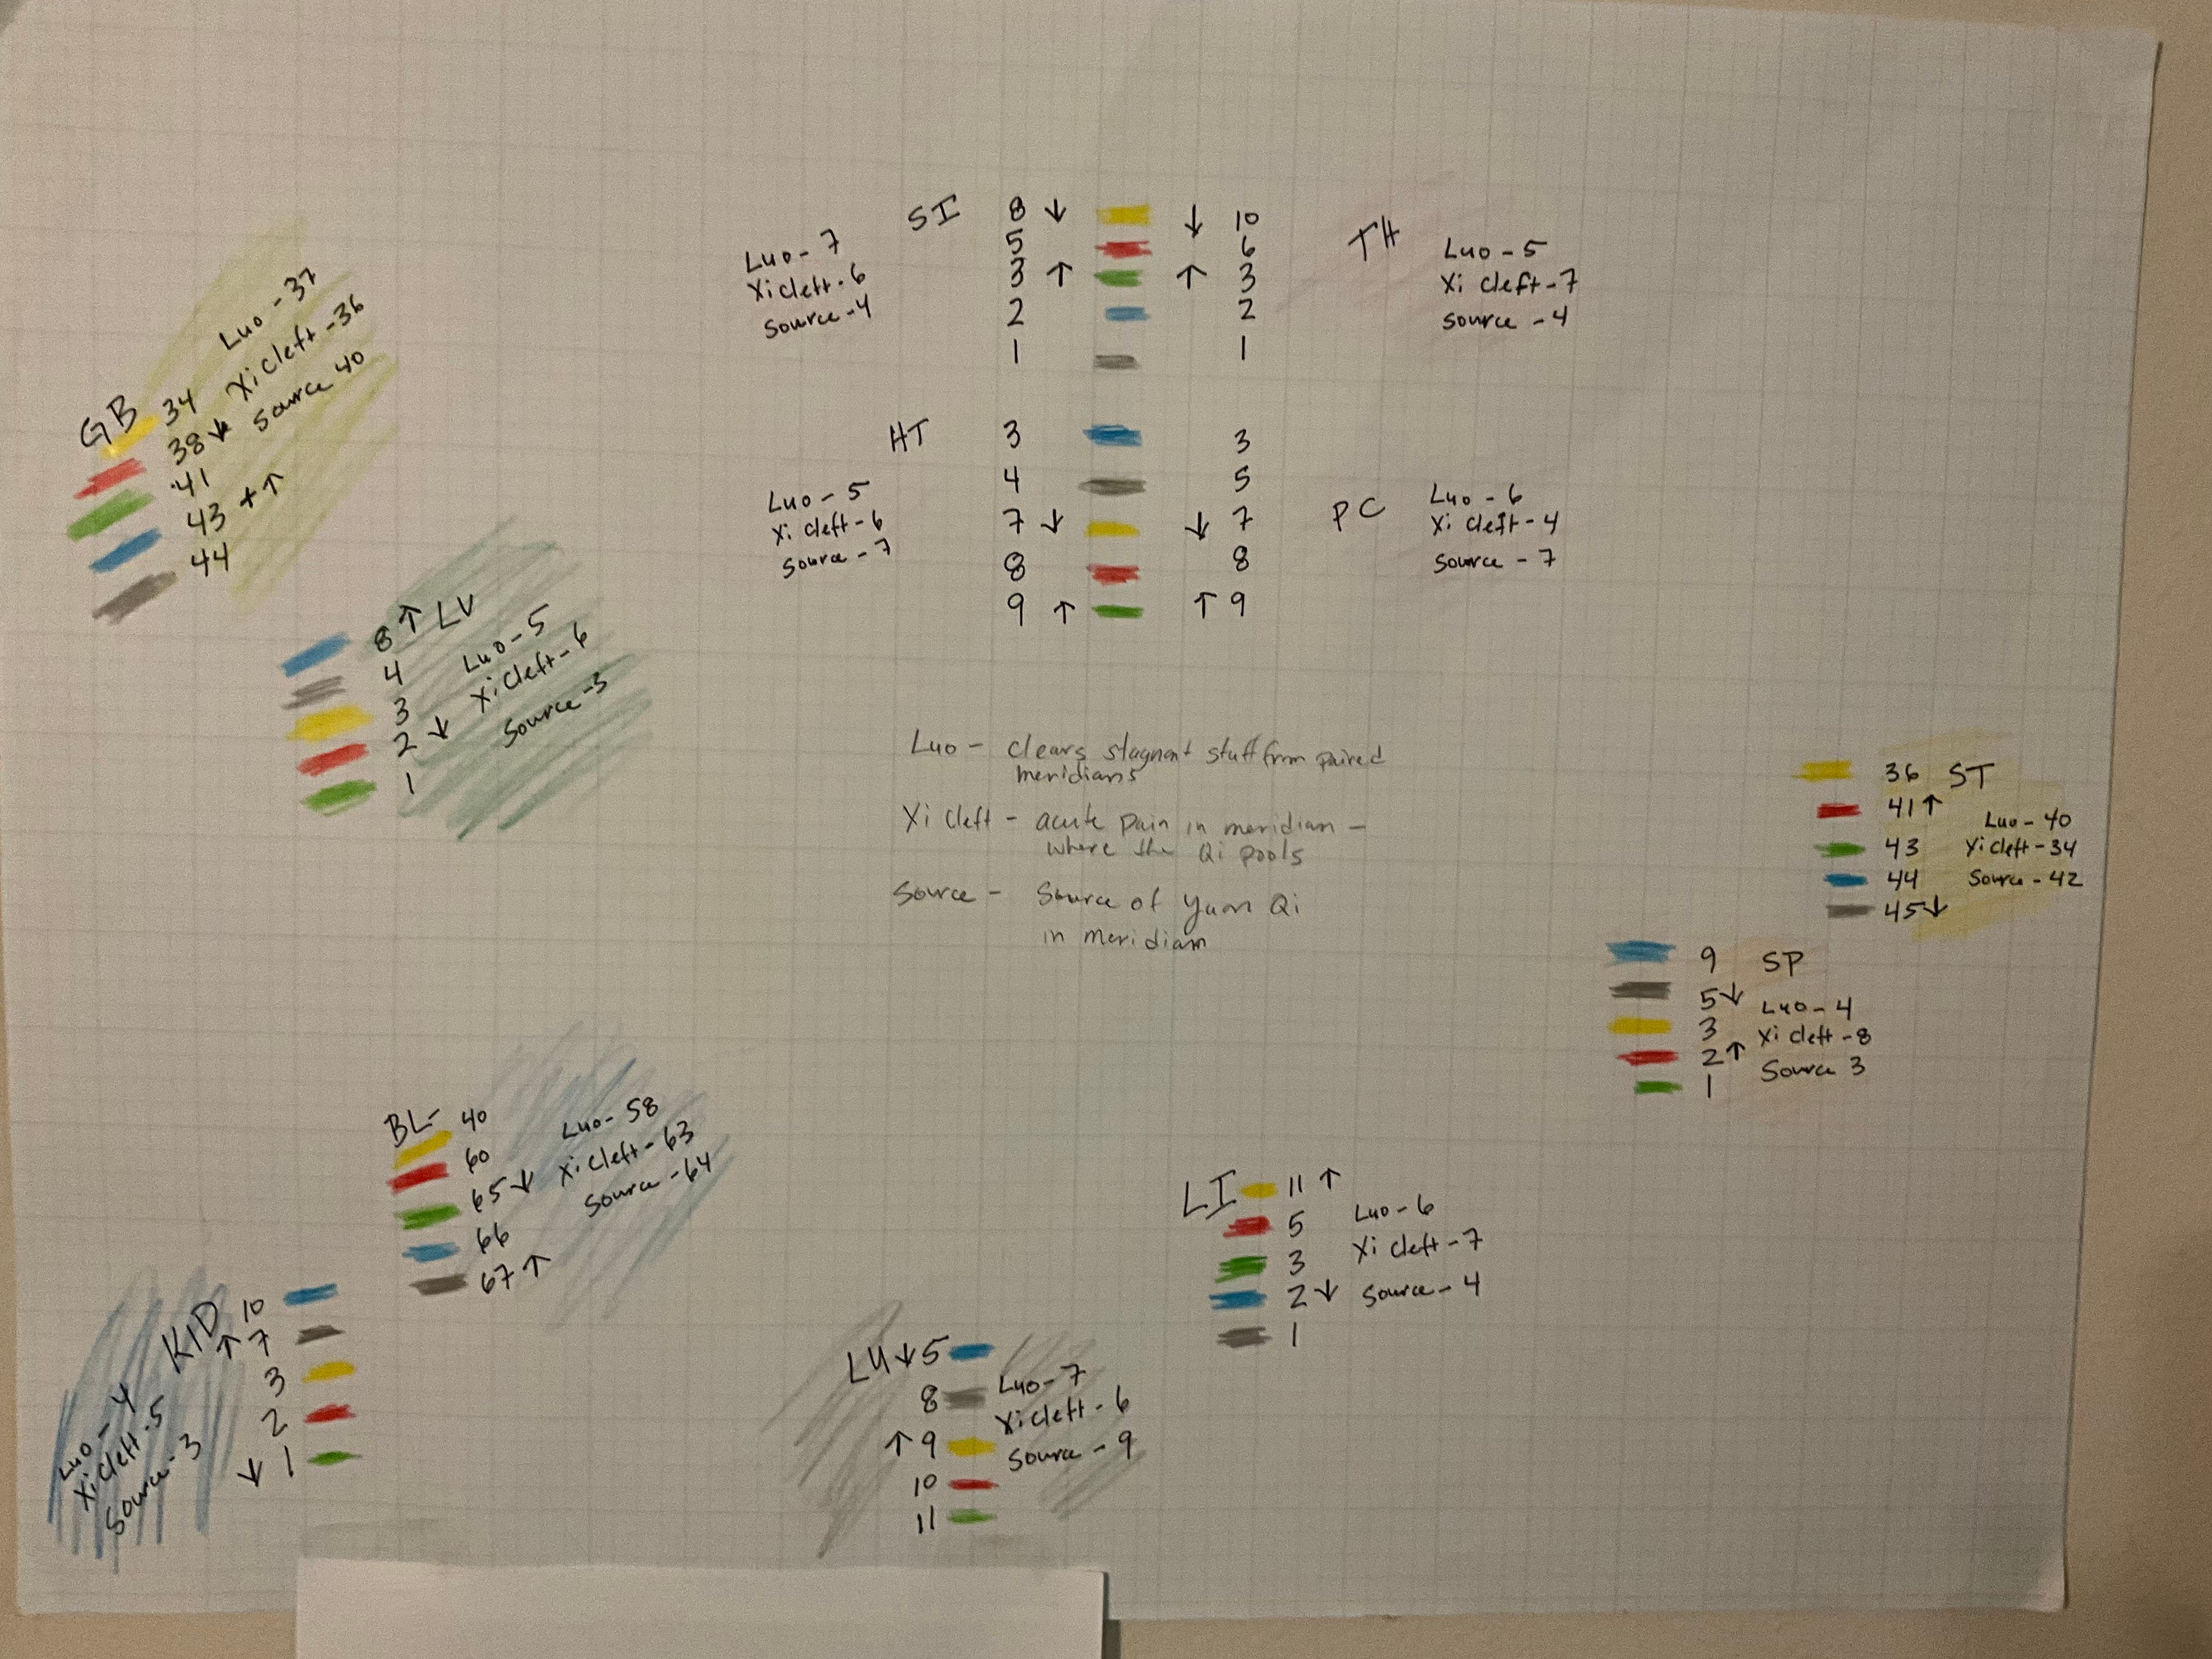 SI 8 ↓ ↓ 10 TH
5 6
3 ↑ ↑ 3
2 2
1 1
Luo - 7
Xi cleft - 6
Source - 4
Luo - 5
Xi Cleft - 7
Source - 4
HT 3 3
4 5
7 ↓ ↓ 7 PC
8 8
9 ↑ ↑ 9
Luo - 5
Xi cleft - 6
Source - 7
Luo - 6
Xi Cleft - 4
Source - 7
GB 34
38 ↓
41
43 + ↑
44
Luo - 37
Xi cleft - 36
Source 40
8 ↑ LV
4
3
2 ↓
1
Luo - 5
Xi cleft - 6
Source - 3
Luo - clears stagnant stuff from paired
meridians
Xi Cleft - acute pain in meridian -
where the Qi pools
Source - Source of Yuan Qi
in meridian
36 ST
41 ↑
43
44
45 ↓
Luo - 40
Xi cleft - 34
Source - 42
9 SP
5 ↓
3
2 ↑
1
Luo - 4
Xi cleft - 8
Source 3
BL - 40
60
65 ↓
66
67 ↑
Luo - 58
Xi cleft - 63
Source - 64
LI 11 ↑
5
3
2 ↓
1
Luo - 6
Xi cleft - 7
Source - 4
KID 10
↑ 7
3
2
↓ 1
Luo - 4
Xi cleft - 5
Source - 3
LU ↓ 5
8
↑ 9
10
11
Luo - 7
Xi cleft - 6
Source - 9